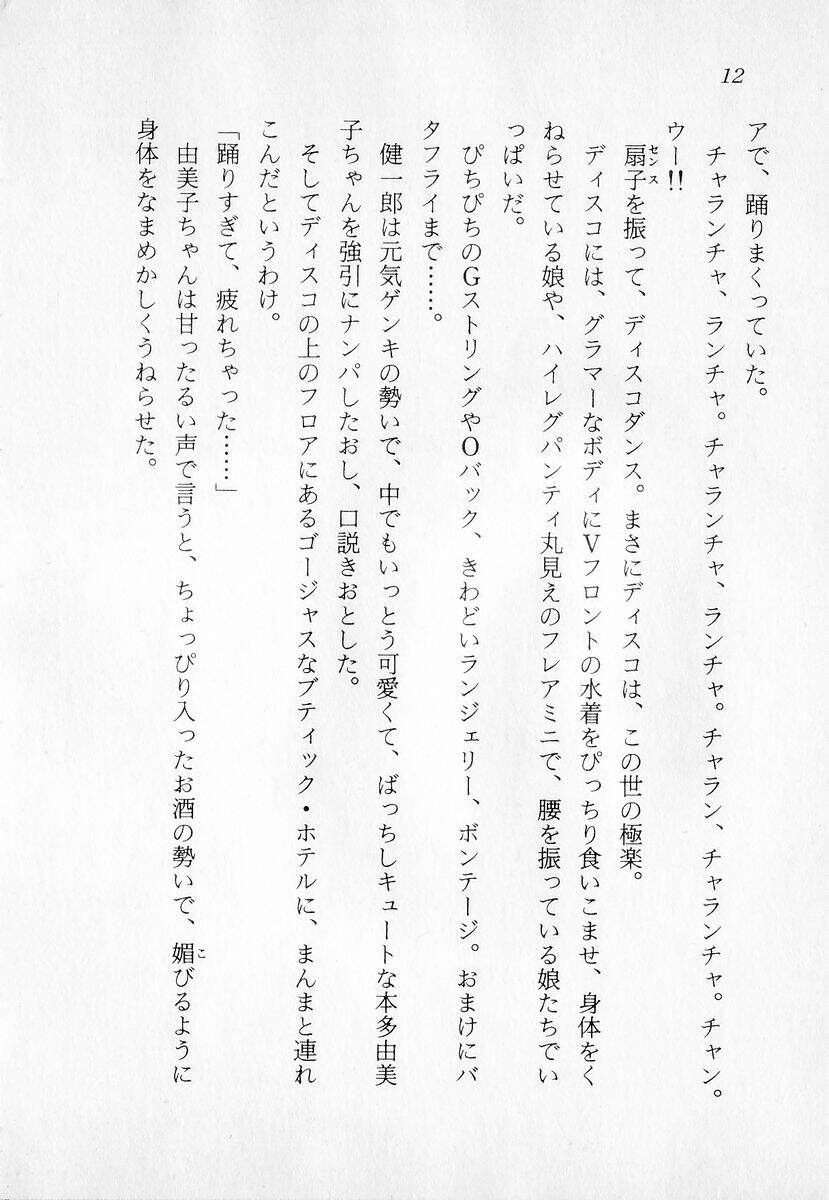 12
アで、踊りまくっていた。
チャランチャ、ランチャ。チャランチャ、ランチャ。チャラン、チャランチャ。チャン。
ウー!!
扇子を振って、ディスコダンス。まさにディスコは、この世の極楽。
センス
ディスコには、グラマーなボディにVフロントの水着をぴっちり食いこませ、身体をく
ねらせている娘や、ハイレグパンティ丸見えのフレアミニで、腰を振っている娘たちでい
っぱいだ。
ぴちぴちのGストリングやOバック、きわどいランジェリー、ボンテージ。おまけにバ
タフライまで……。
健一郎は元気ゲンキの勢いで、中でもいっとう可愛くて、ばっちしキュートな本多由美
子ちゃんを強引にナンパしたおし、口説きおとした。
そしてディスコの上のフロアにあるゴージャスなブティック・ホテルに、まんまと連れ
こんだというわけ。
「踊りすぎて、疲れちゃった……」
由美子ちゃんは甘ったるい声で言うと、ちょっぴり入ったお酒の勢いで、媚びるように
こ
身体をなまめかしくうねらせた。